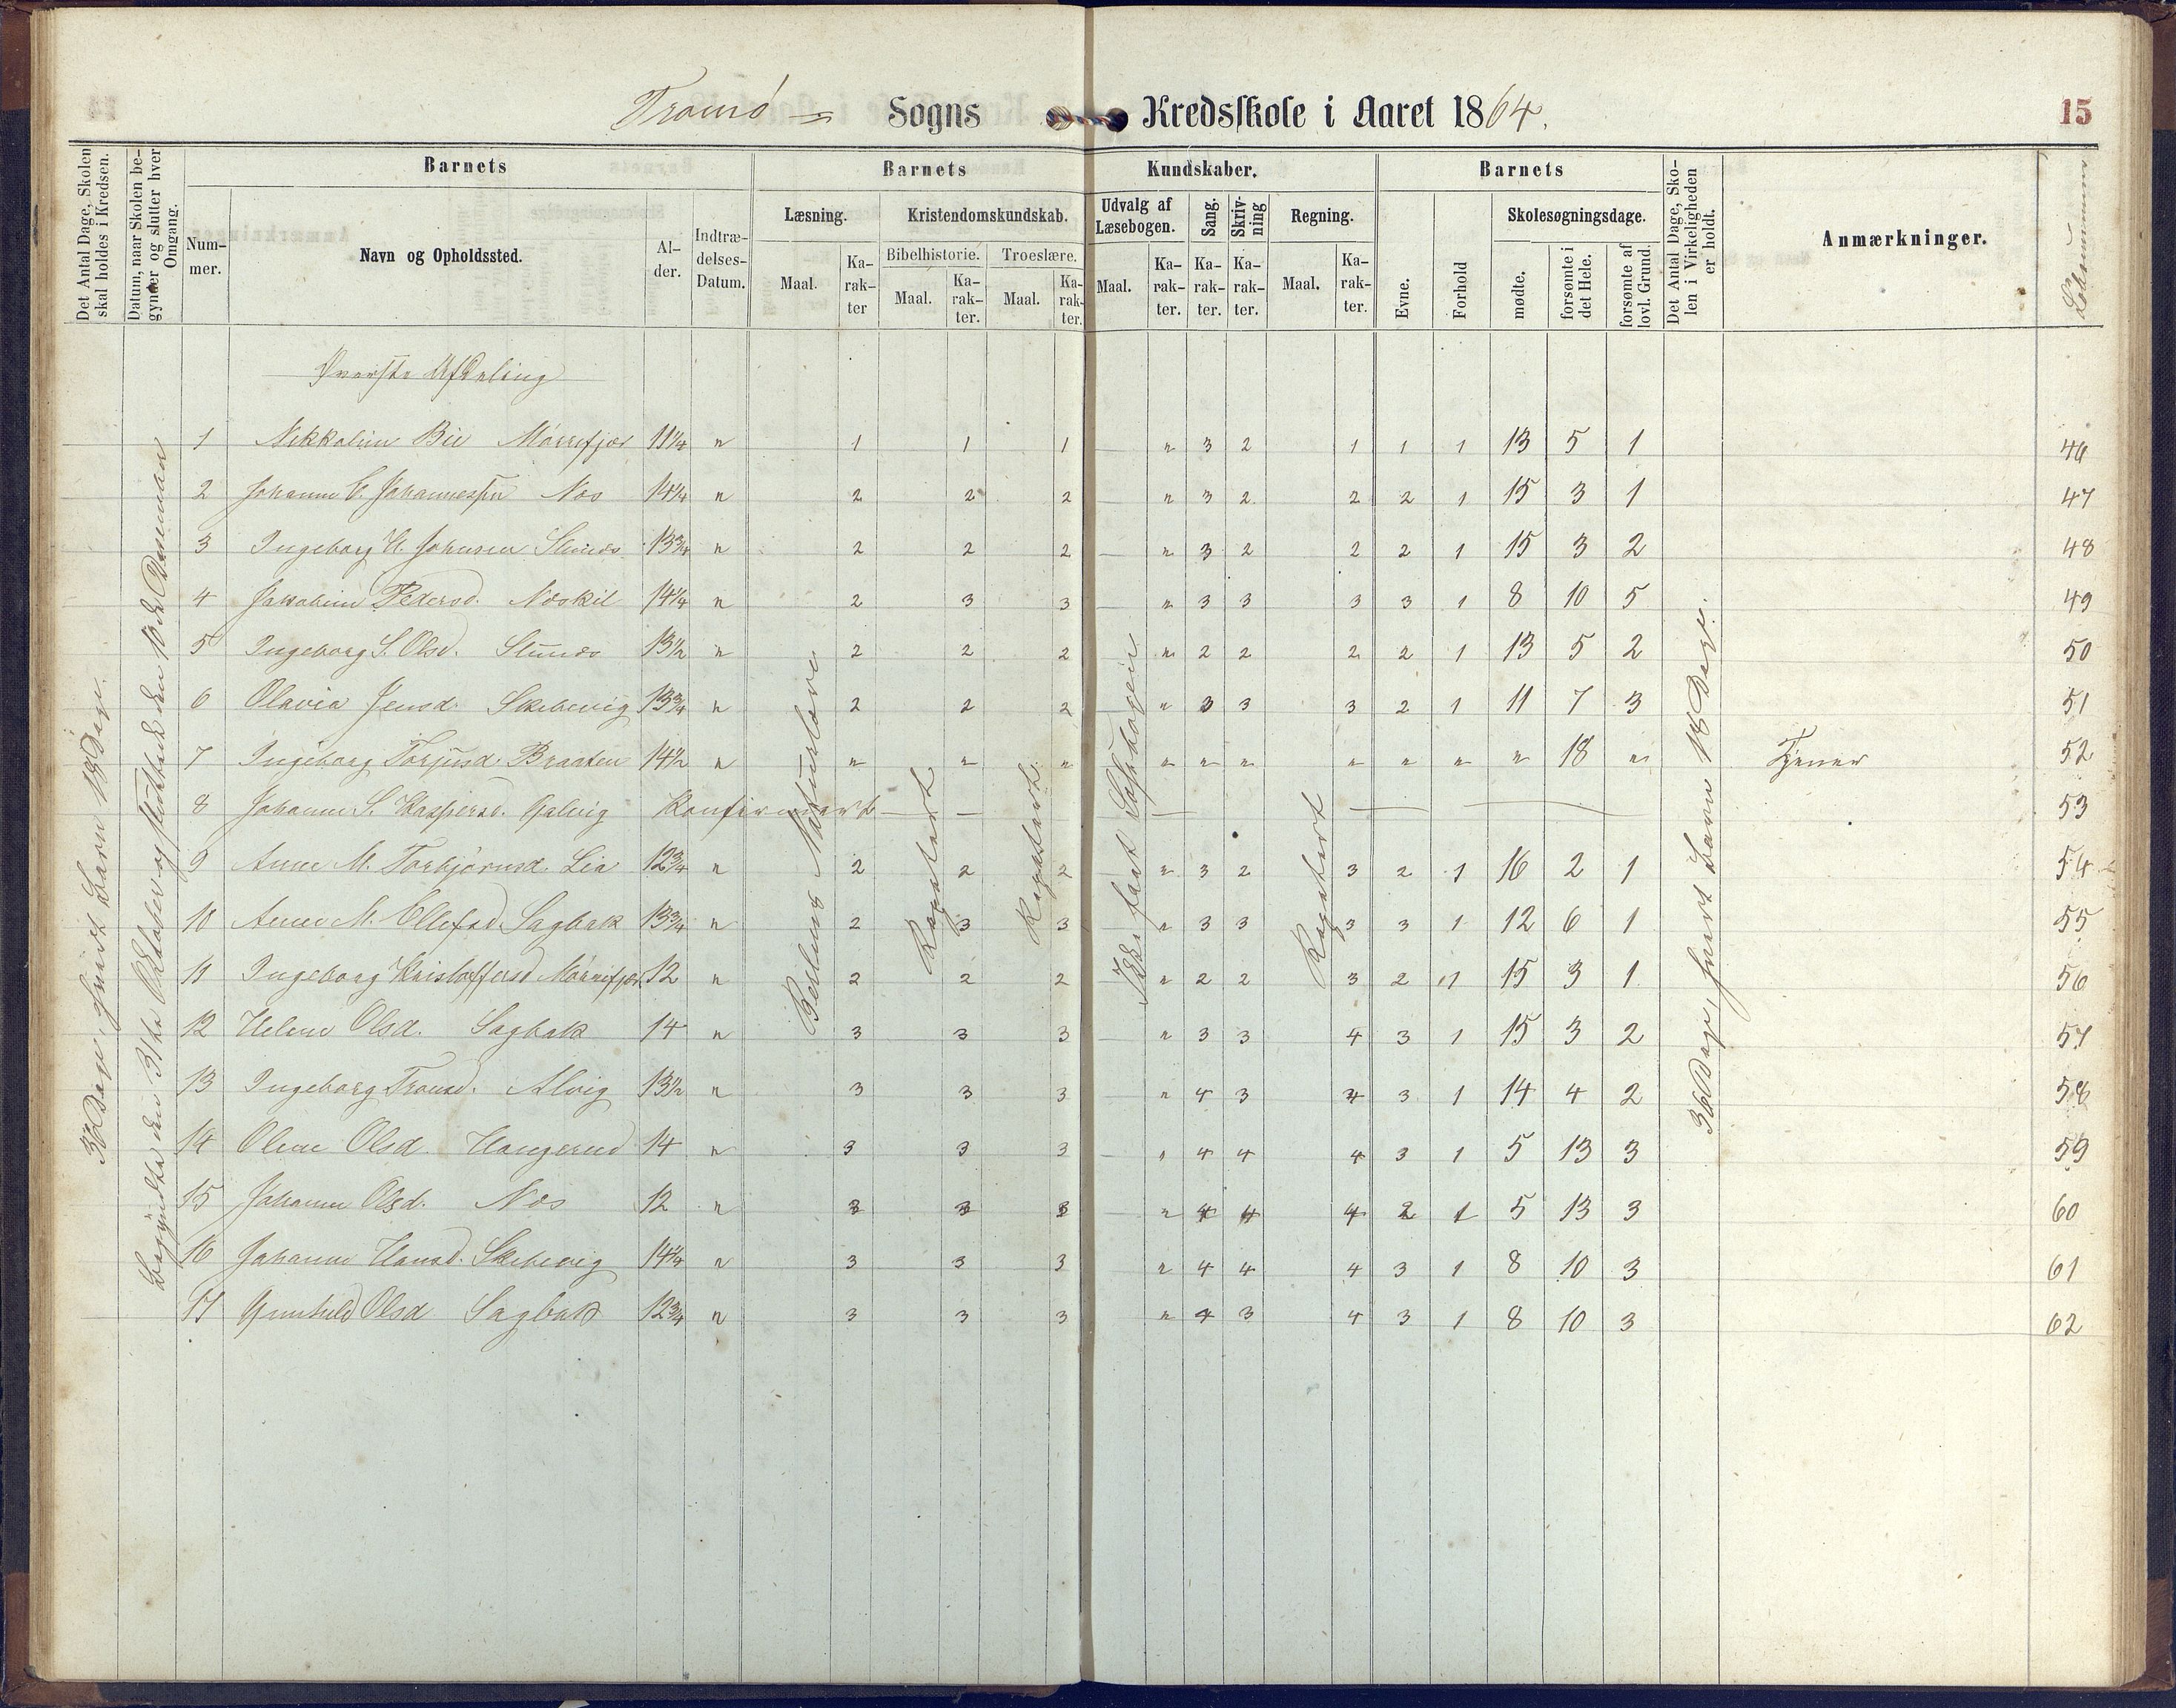 Tromö Sogns Kredsskole i Aaret 1864.
15
Det Antal Dage, Skolen skal holdes i Kredsen.
Datum, naar Skolen begynder og slutter hver Omgang.
Barnets
Nummer.
Navn og Opholdssted.
Alder.
Indtrædelses-Datum.
Barnets Kundskaber.
Læsning.
Maal.
Karakter
Kristendomskundskab.
Bibelhistorie.
Maal.
Karakter.
Troeslære.
Maal.
Karakter.
Udvalg af Læsebogen.
Maal.
Karakter.
Sang.
Karakter.
Skrivning
Karakter.
Regning.
Maal.
Karakter.
Barnets
Evne.
Forhold
Skolesøgningsdage.
mødte.
forsømte i det Hele.
forsømte af lovl. Grund.
Det Antal Dage, Skolen i Virkeligheden er holdt.
Anmærkninger.
Löbenummer
Øverste Afdeling
36 Dage, hvert Barn 18 Dage.
Begyndte den 31te Oktober og sluttede den 10de December
Repetert
Repetert
Repetert
36 Dage, hvert Barn 18 Dage.
1 Nikkoline Bie Mörrefjær 11¼ " 1 1 1 " 3 2 1 1 1 13 5 1 46
2 Johanne C. Johannessen Næs 14¼ " 2 2 2 " 3 2 2 2 1 15 3 1 47
3 Ingeborg H. Johnsen 13¾ " 2 2 2 " 3 2 2 2 1 15 3 2 48
4 Jakobine Pedersd. Næskil 14¼ " 2 3 3 " 3 3 3 3 1 8 10 5 49
5 Ingeborg S. Olsd. 13½ " 2 2 2 " 2 2 2 2 1 13 5 2 50
6 Olavia Jensd. Skibevig 13¾ " 2 2 2 " 3 3 3 2 1 11 7 3 51
7 Ingeborg Torjusd. Braaten 14½ " " " " " " " " " " " 18 " Tjener 52
8 Johanne S. Kaspersd. Konfirmert 53
9 Anne M. Torbjörnsd. Lia 12¾ " 2 2 2 " 3 2 3 2 1 16 2 1 54
10 Anne M. Ellefsd. Sagbak 13¾ " 2 3 3 " 3 3 3 3 1 12 6 1 55
11 Ingeborg Kristoffersd Mörrefjær 12 " 2 2 2 " 2 2 3 2 1 15 3 1 56
12 Helene Olsd. Sagbak 14 " 3 3 3 " 3 3 4 3 1 15 3 2 57
13 Ingeborg Tronsd. Alvig 13½ " 3 3 3 " 4 3 4 3 1 14 4 2 58
14 Oline Olsd. Haugerud 14 " 3 3 3 " 4 4 4 3 1 5 13 3 59
15 Johanne Olsd. Næs 12 " 3 3 3 " 4 4 4 2 1 5 13 3 60
16 Johanne Hansd. Skibevig 14¼ " 3 3 3 " 4 4 4 3 1 8 10 3 61
17 Gunhild Olsd Sagbak 12¾ " 3 3 3 " 4 3 4 3 1 8 10 3 62